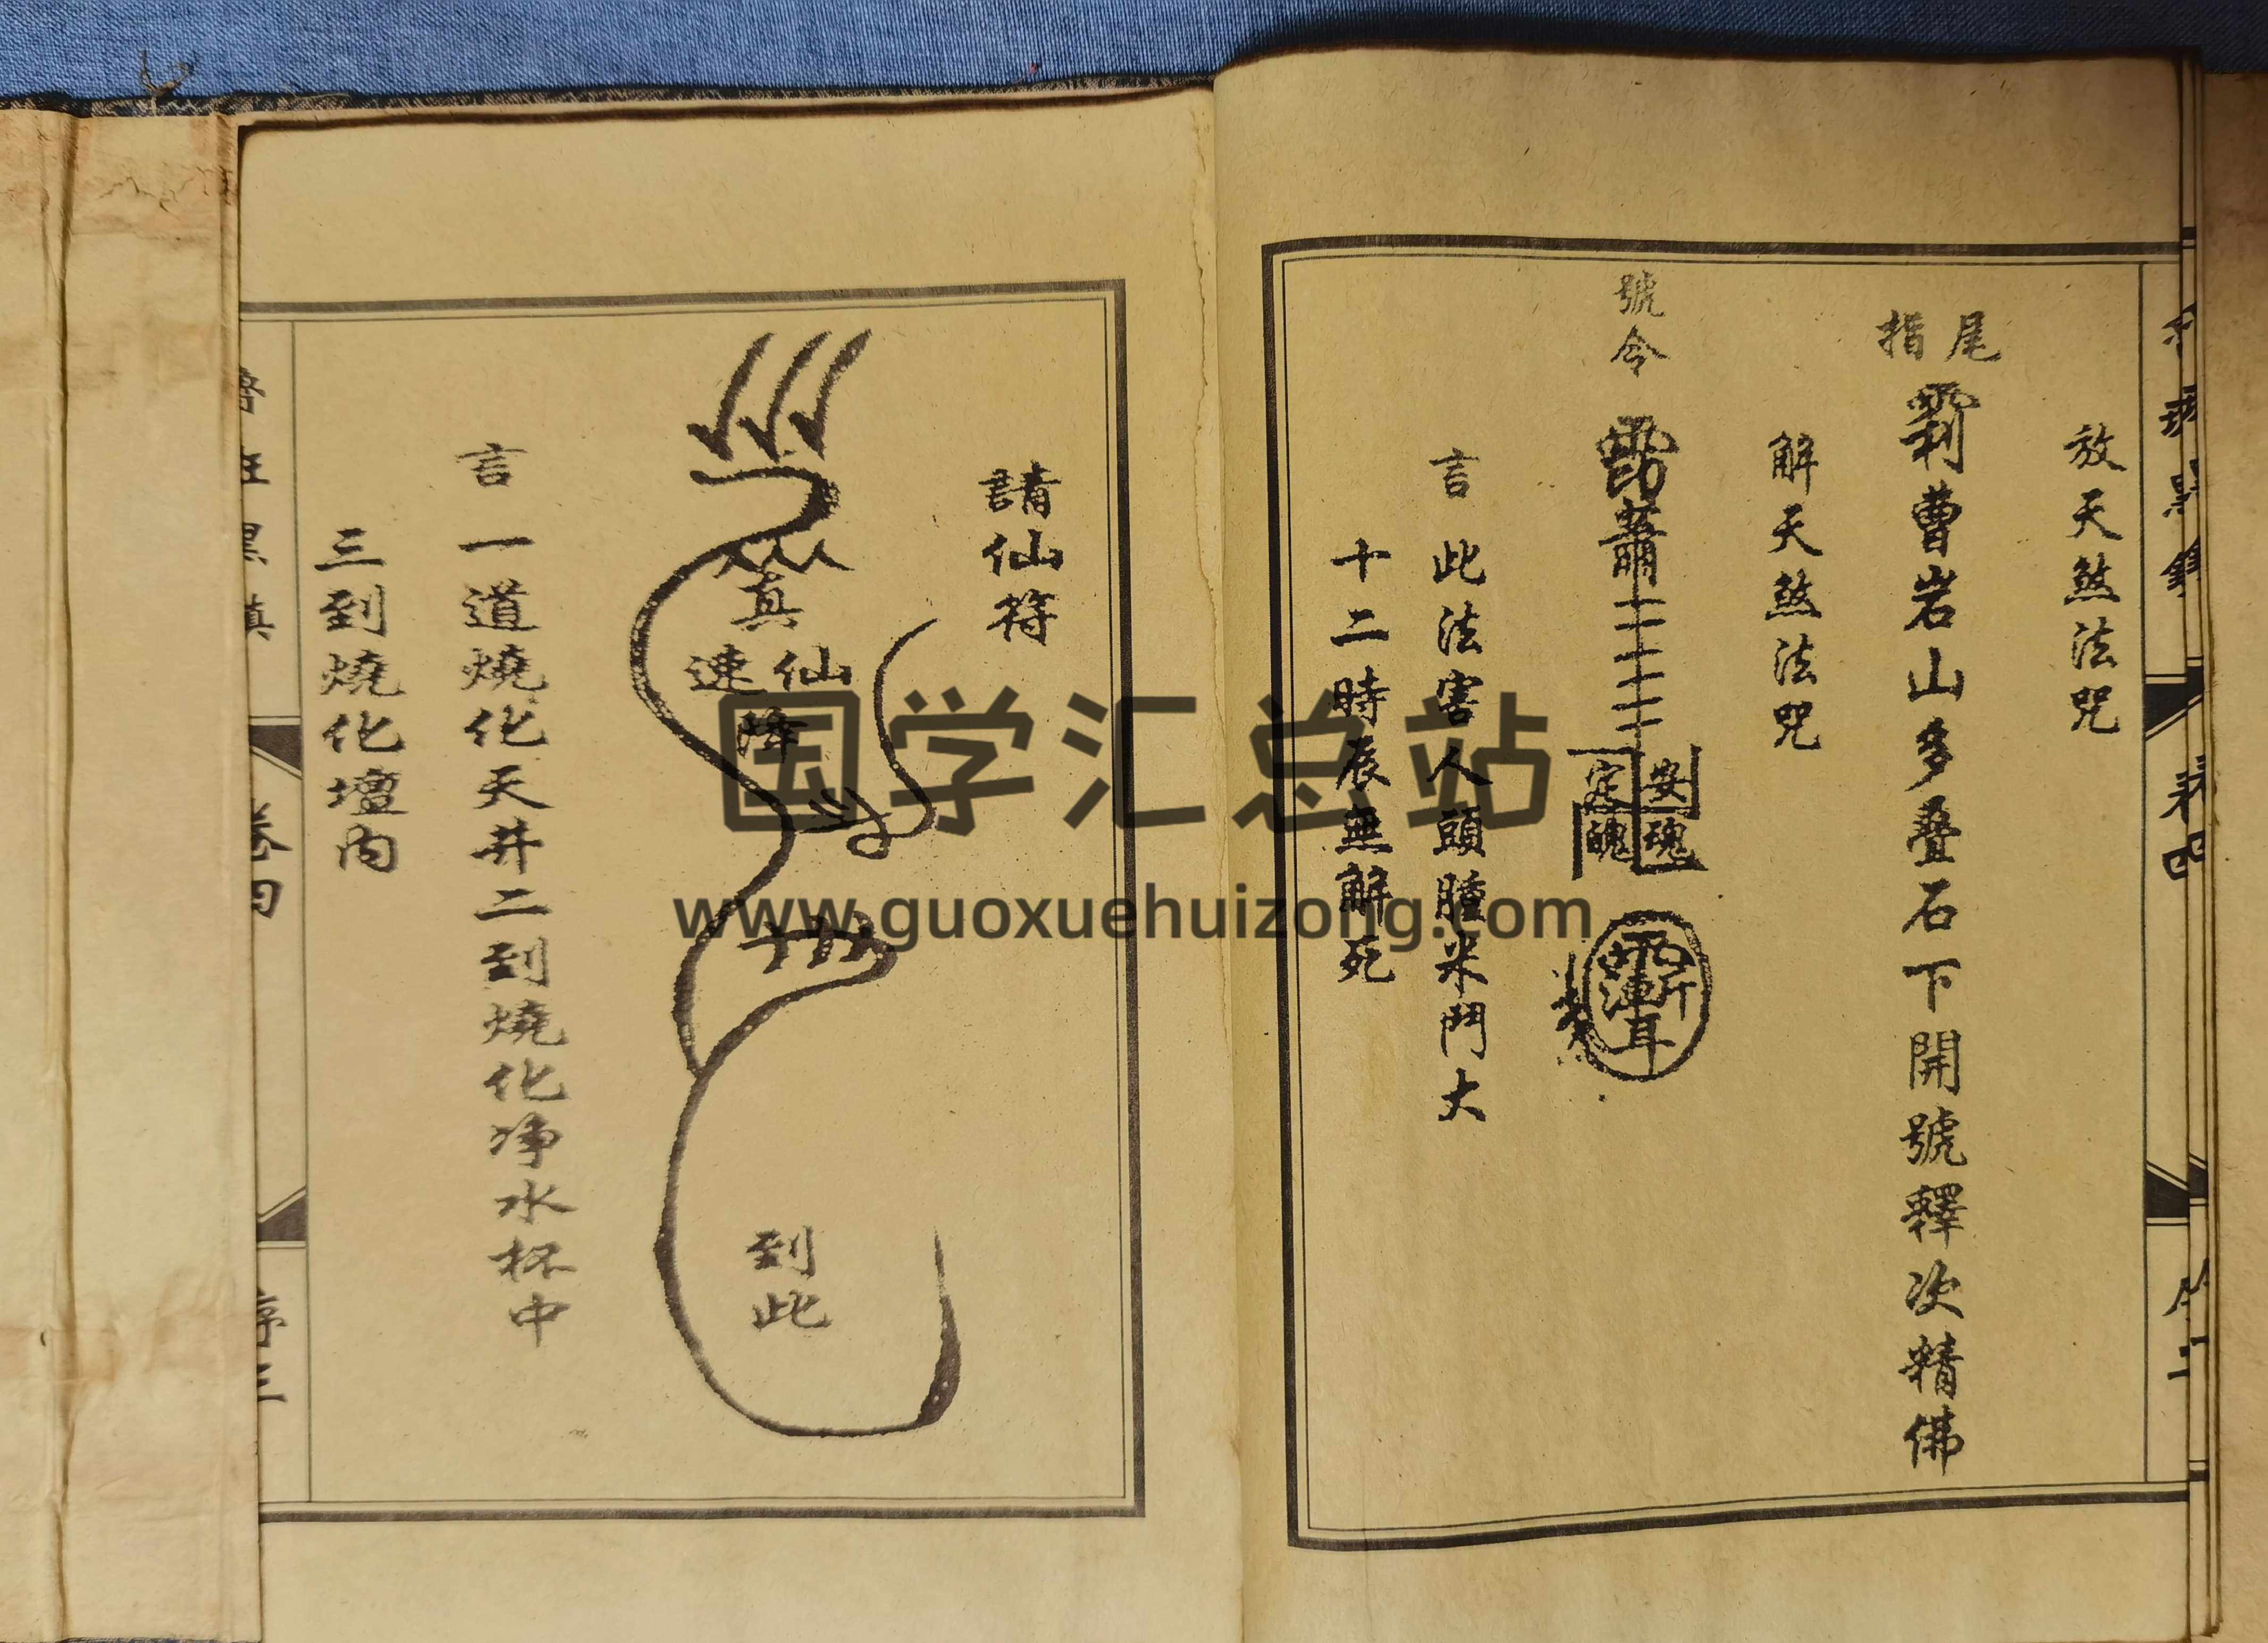 放天煞法咒
尾指
曹岩山多叠石下開號釋次精佛
解天煞法咒
號令
安魂
定魄
言此法害人頭腫米鬥大
十二時辰無解死
請仙符
真仙速降
到此
言一道燒化天井二到燒化净水杯中
三到燒化壇内
卷四
国学汇总站
www.guoxuehuizong.com